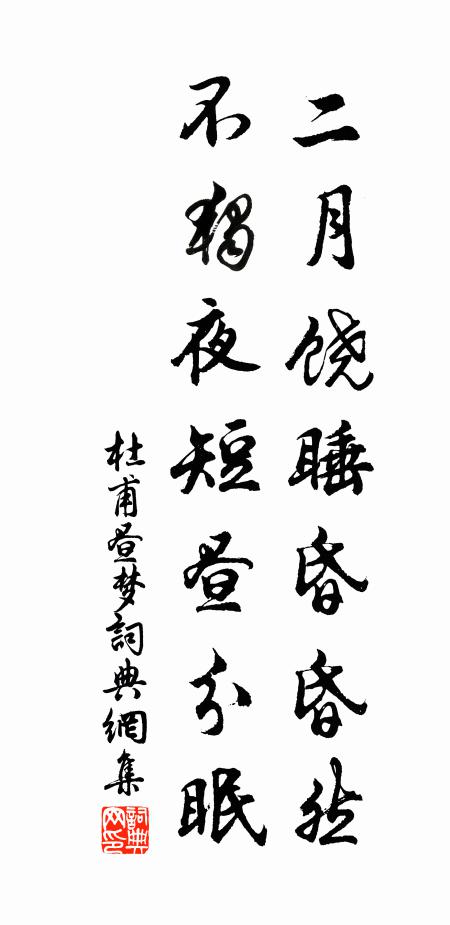 二月饶睡昏昏然
不獨夜短昼分眠
杜甫昼梦詞典網集
詞典网印